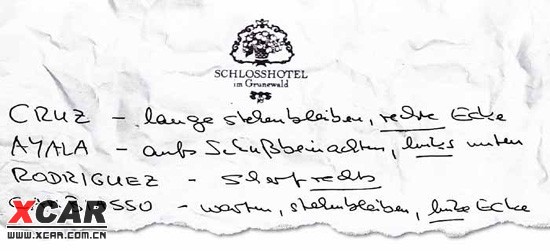 SCHLOSSHOTEL
im Grunewald
CRUZ - lange stehenbleiben, rechte Ecke
AYALA - aufs Schußbein achten, links unten
RODRIGUEZ - scharf rechts
- warten, stehenbleiben, linke Ecke
XCAR
WWW.XCAR.COM.CN